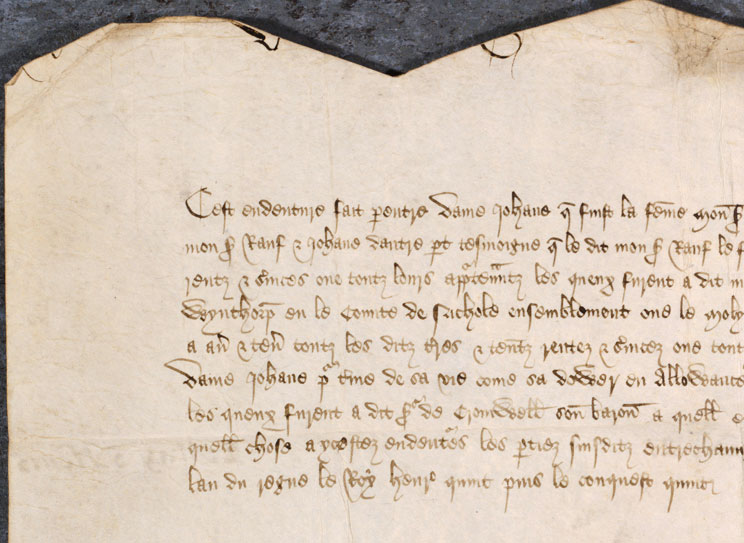 Cest endenture fait pentre Dame Johane q̄ fuist la fēme Mon sr̄
mon sr̄ Rauf & Johane dautre pt tesmoigne q̄ le dit mon sr̄ Rauf le f
rentz & s̄uices oue toutz lours aptenantz les queux furent a dit m
Wynthorp en le Comite de Nichole ensemblement oue le moly
a au & teñ toutz les ditz t̄res & teñtz rentez & s̄uicez oue tout
Dame Johane pr t̄me de sa vie come sa dower en allowance
les queux furent a dit sr̄ de Cromwell soñ baroñ a quell
quell chose a ycestez endentures les ptiez susditz entrechaun
lan du regne le Roy Henr̄ quint puis le conquest quint